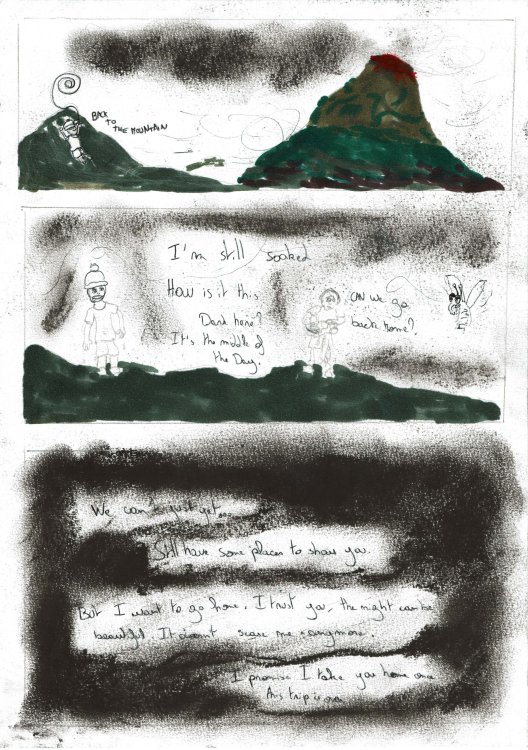 BACK
TO
THE MOUNTAIN
I'm still soaked
HOW is it this
Dark here?
It's the middle of
the Day.
CAN we go
back home?
We can't just yet...
Still have some places to show you.
But I want to go home. I trust you, the night can be
beautiful. It doesn't scare me anymore.
I promise I take you home once
this trip is over